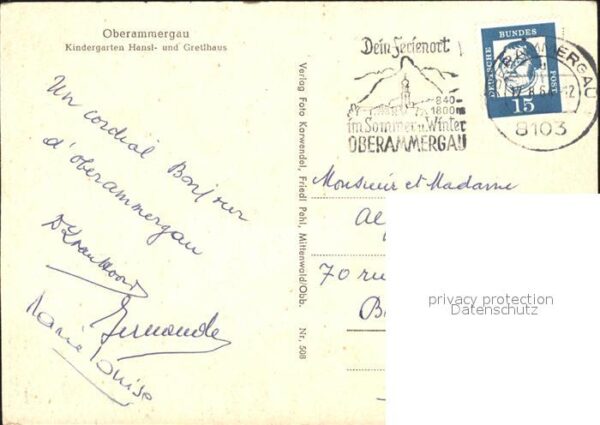 Oberammergau
Kindergarten Hansl- und Gretlhaus
Un cordial Bonjour
d'oberammergau
Fernande
Marie Louise
Verlag Foto Karwendel, Friedl Pohl, Mittenwald/Obb.
Nr. 508
Dein Ferienort
840-
1800m
im Sommer u. Winter
OBERAMMERGAU
DEUTSCHE BUNDESPOST
15
OBERAMMERGAU
8103
Monsieur et Madame
70 rue
privacy protection
Datenschutz